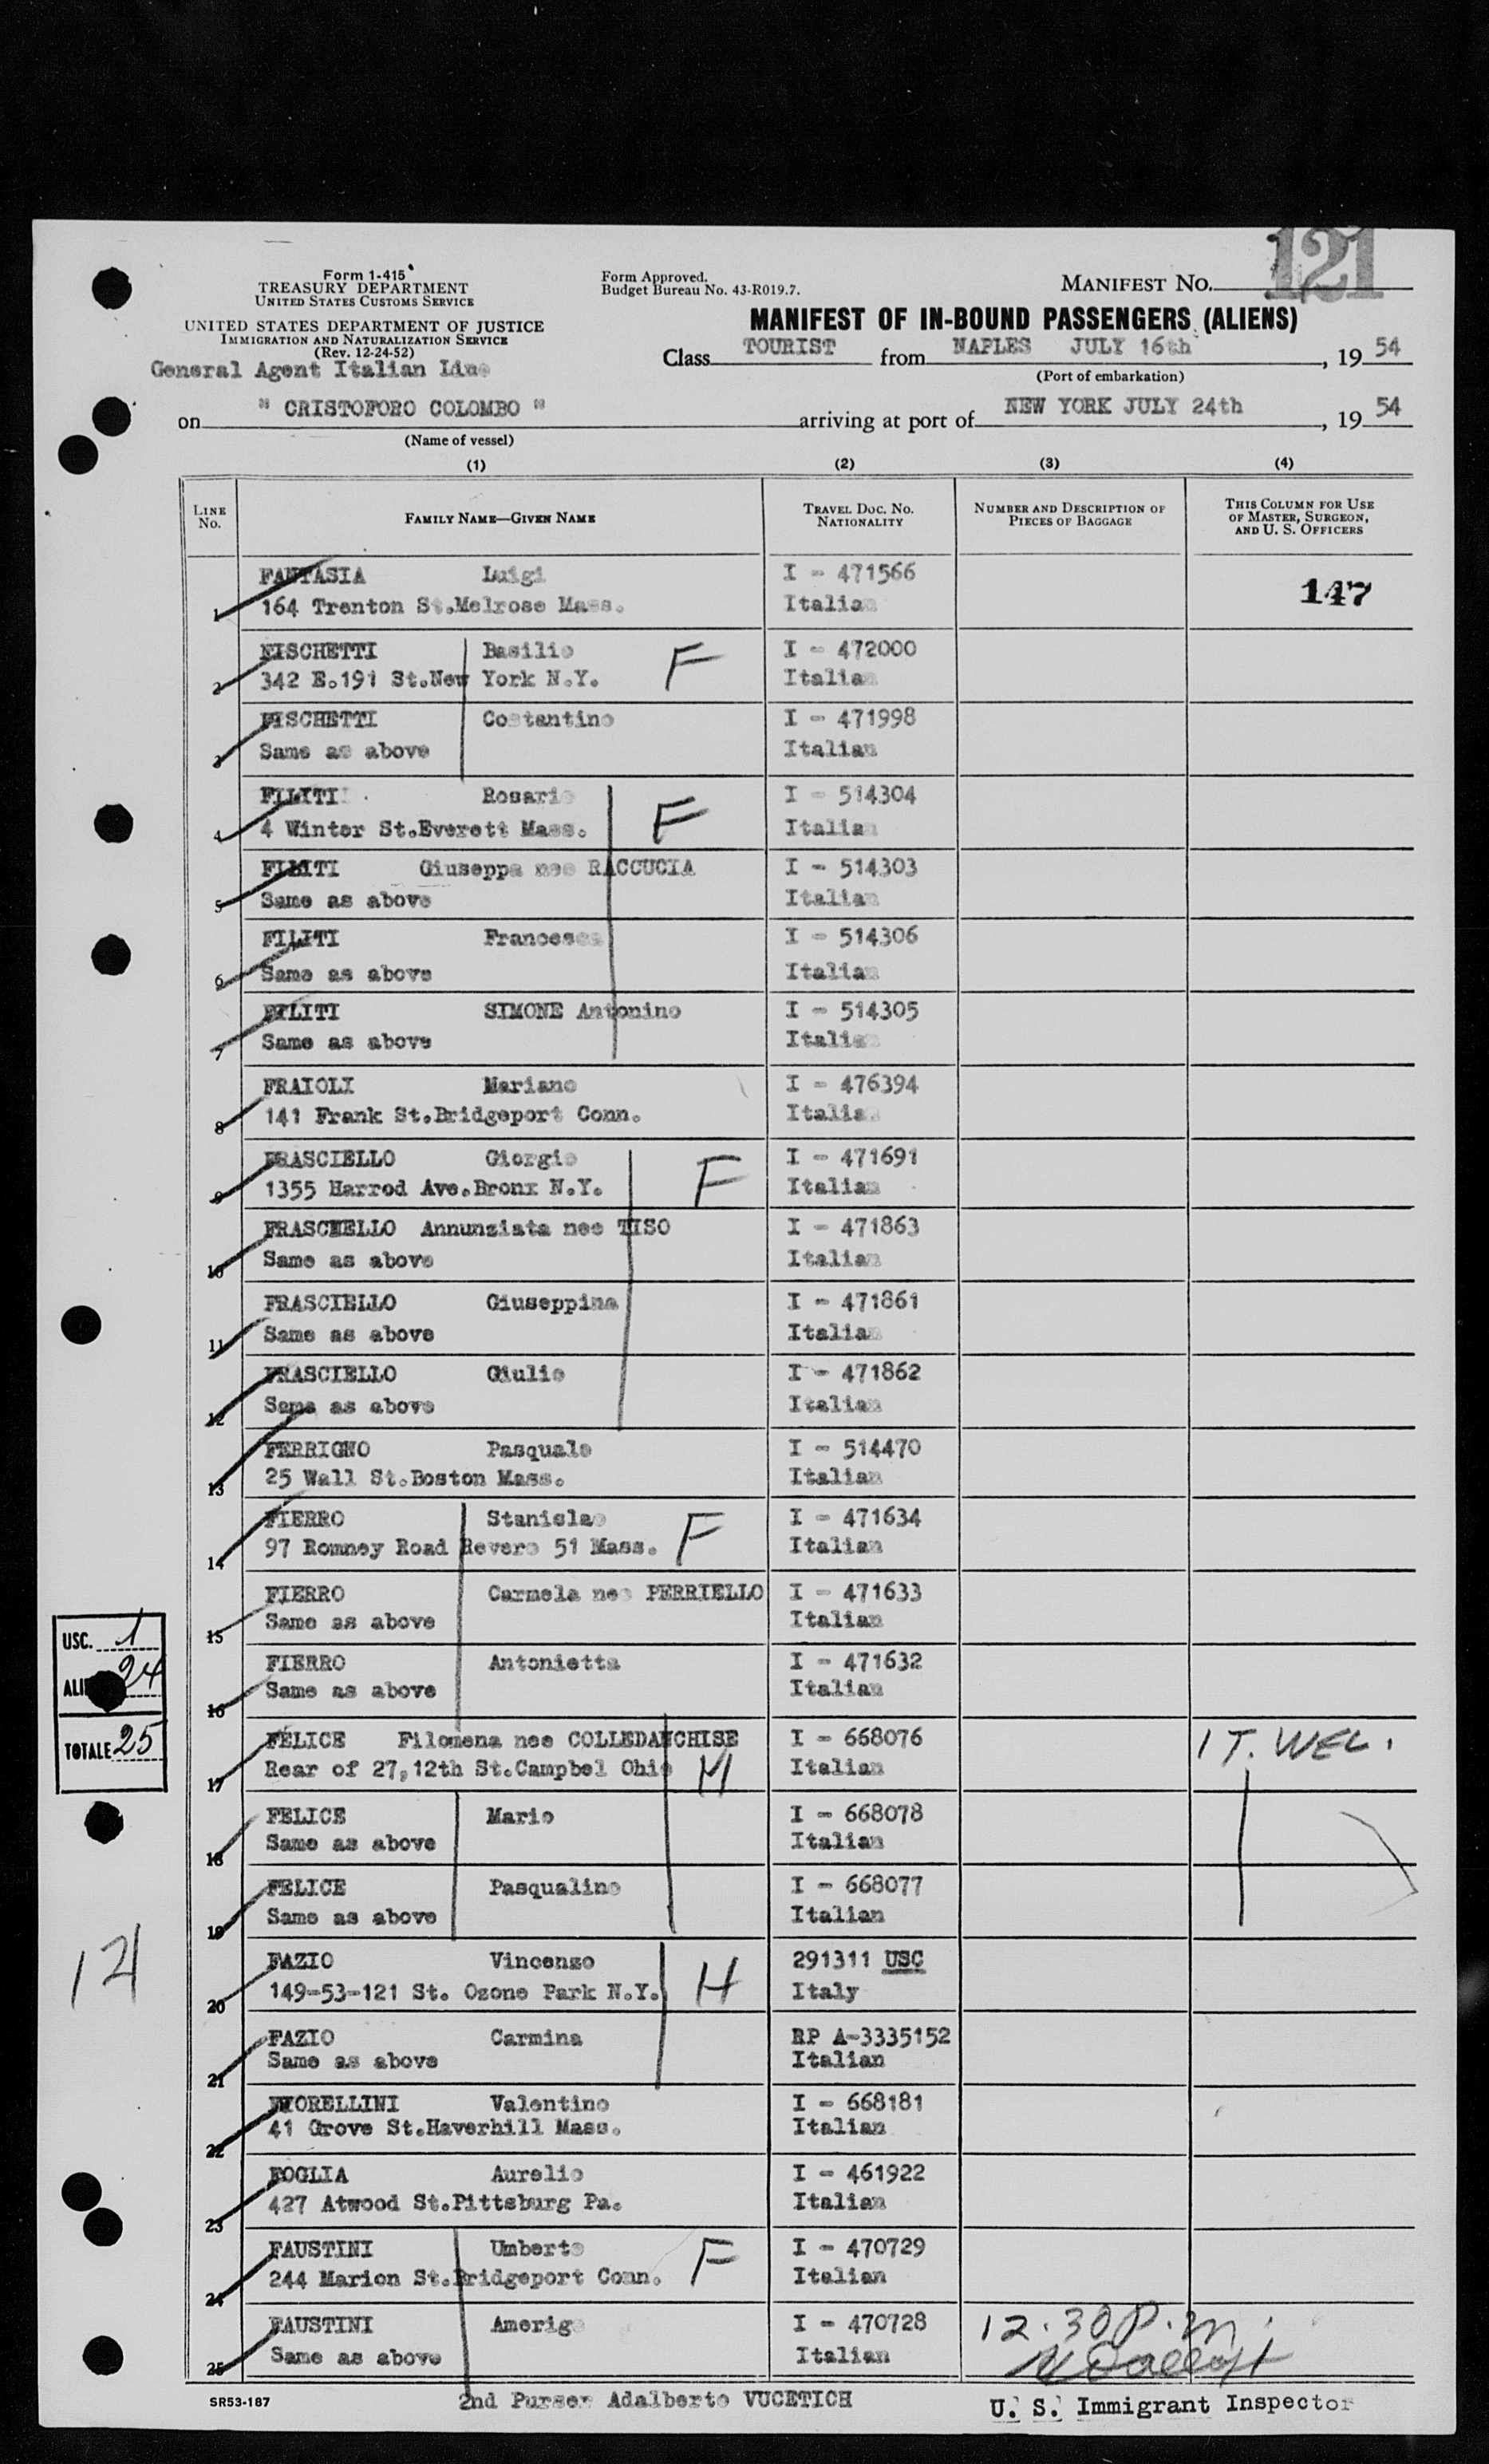 121
Form 1-415
TREASURY DEPARTMENT
UNITED STATES CUSTOMS SERVICE
UNITED STATES DEPARTMENT OF JUSTICE
IMMIGRATION AND NATURALIZATION SERVICE
(Rev. 12-24-52)
General Agent Italian Line
Form Approved.
Budget Bureau No. 43-R019.7.
MANIFEST NO.
MANIFEST OF IN-BOUND PASSENGERS (ALIENS)
Class TOURIST from NAPLES JULY 16th, 19 54
(Port of embarkation)
on " CRISTOFORO COLOMBO " arriving at port of NEW YORK JULY 24th, 19 54
(Name of vessel)
(1) (2) (3) (4)
LINE NO. FAMILY NAME—GIVEN NAME TRAVEL DOC. NO. NATIONALITY NUMBER AND DESCRIPTION OF PIECES OF BAGGAGE THIS COLUMN FOR USE OF MASTER, SURGEON, AND U. S. OFFICERS
FANTASIA Luigi I - 471566
1 164 Trenton St.Melrose Mass. Italian 147
FISCHETTI Basilio F I - 472000
2 342 E.191 St.New York N.Y. Italian
FISCHETTI Costantino I - 471998
3 Same as above Italian
FILITI Rosario F I - 514304
4 4 Winter St.Everett Mass. Italian
FILITI Giuseppa nee RACCUCIA I - 514303
5 Same as above Italian
FILITI Francesca I - 514306
6 Same as above Italian
FILITI SIMONE Antonino I - 514305
7 Same as above Italian
FRAIOLI Mariano I - 476394
8 141 Frank St.Bridgeport Conn. Italian
FRASCIELLO Giorgio F I - 471691
9 1355 Harrod Ave.Bronx N.Y. Italian
FRASCHELLO Annunziata nee TISO I - 471863
10 Same as above Italian
FRASCIELLO Giuseppina I - 471861
11 Same as above Italian
FRASCIELLO Giulio I - 471862
12 Same as above Italian
FERRIGNO Pasquale I - 514470
13 25 Wall St.Boston Mass. Italian
FIERRO Stanislao F I - 471634
14 97 Romney Road Revere 51 Mass. Italian
FIERRO Carmela nee PERRIELLO I - 471633
15 Same as above Italian
FIERRO Antonietta I - 471632
16 Same as above Italian
FELICE Filomena nee COLLEDANCHISE I - 668076 1 T. WEL.
17 Rear of 27,12th St.Campbel Ohio M Italian
FELICE Mario I - 668078
18 Same as above Italian
FELICE Pasqualino I - 668077
19 Same as above Italian
FAZIO Vincenzo H 291311 USC
20 149-53-121 St. Ozone Park N.Y. Italy
FAZIO Carmina RP A-3335152
21 Same as above Italian
FIORELLINI Valentino I - 668181
22 41 Grove St.Haverhill Mass. Italian
FOGLIA Aurelio I - 461922
23 427 Atwood St.Pittsburg Pa. Italian
FAUSTINI Umberto F I - 470729
24 244 Marion St.Bridgeport Conn. Italian
FAUSTINI Amerigo I - 470728 12.30 P.m.
25 Same as above Italian
USC. 1
ALI 24
TOTALE 25
SR53-187 2nd Purser Adalberto VUCETICH U. S. Immigrant Inspector